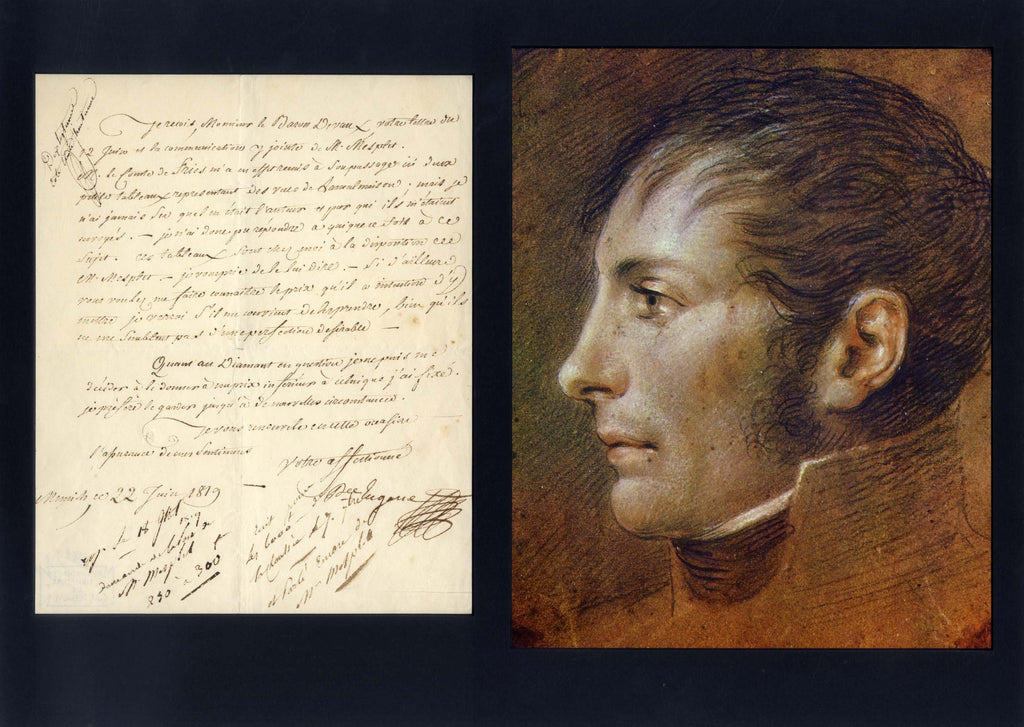 Je reçois, Monsieur le Baron Devaux, votre lettre du
12 Juin et la communication y jointe de Mr. Mesplet.
le Comte de Fries m'a en effet remis à son passage ici deux
petits tableaux représentant des vues de la malmaison. mais je
n'ai jamais su quel en était l'auteur et par qui ils m'étaient
envoyés. — je n'ai donc pu répondre à qui que ce soit à ce
sujet. ces tableaux sont chez moi à la disposition de
Mr. Mesplet — je vous prie de le lui dire. — Si d'ailleurs
vous voulez me faire connaître le prix qu'il a intention d'y
mettre je verrai s'il me convient de les prendre, bien qu'ils
ne me semblent pas d'une perfection désirable —
Quant au Diamant en question je ne puis me
décider à le donner à un prix inférieur à celui que j'ai fixé.
je préfère le garder jusqu'à de nouvelles circonstances.
Je vous renouvelle en cette occasion
l'assurance de mes sentimens
Votre affectionné
Eugene
Munich, ce 22 Juin 1819
rep. le 18
demande
Mr. Mesplet
250 à 300
et parlé encore de
Mr. Mesplet